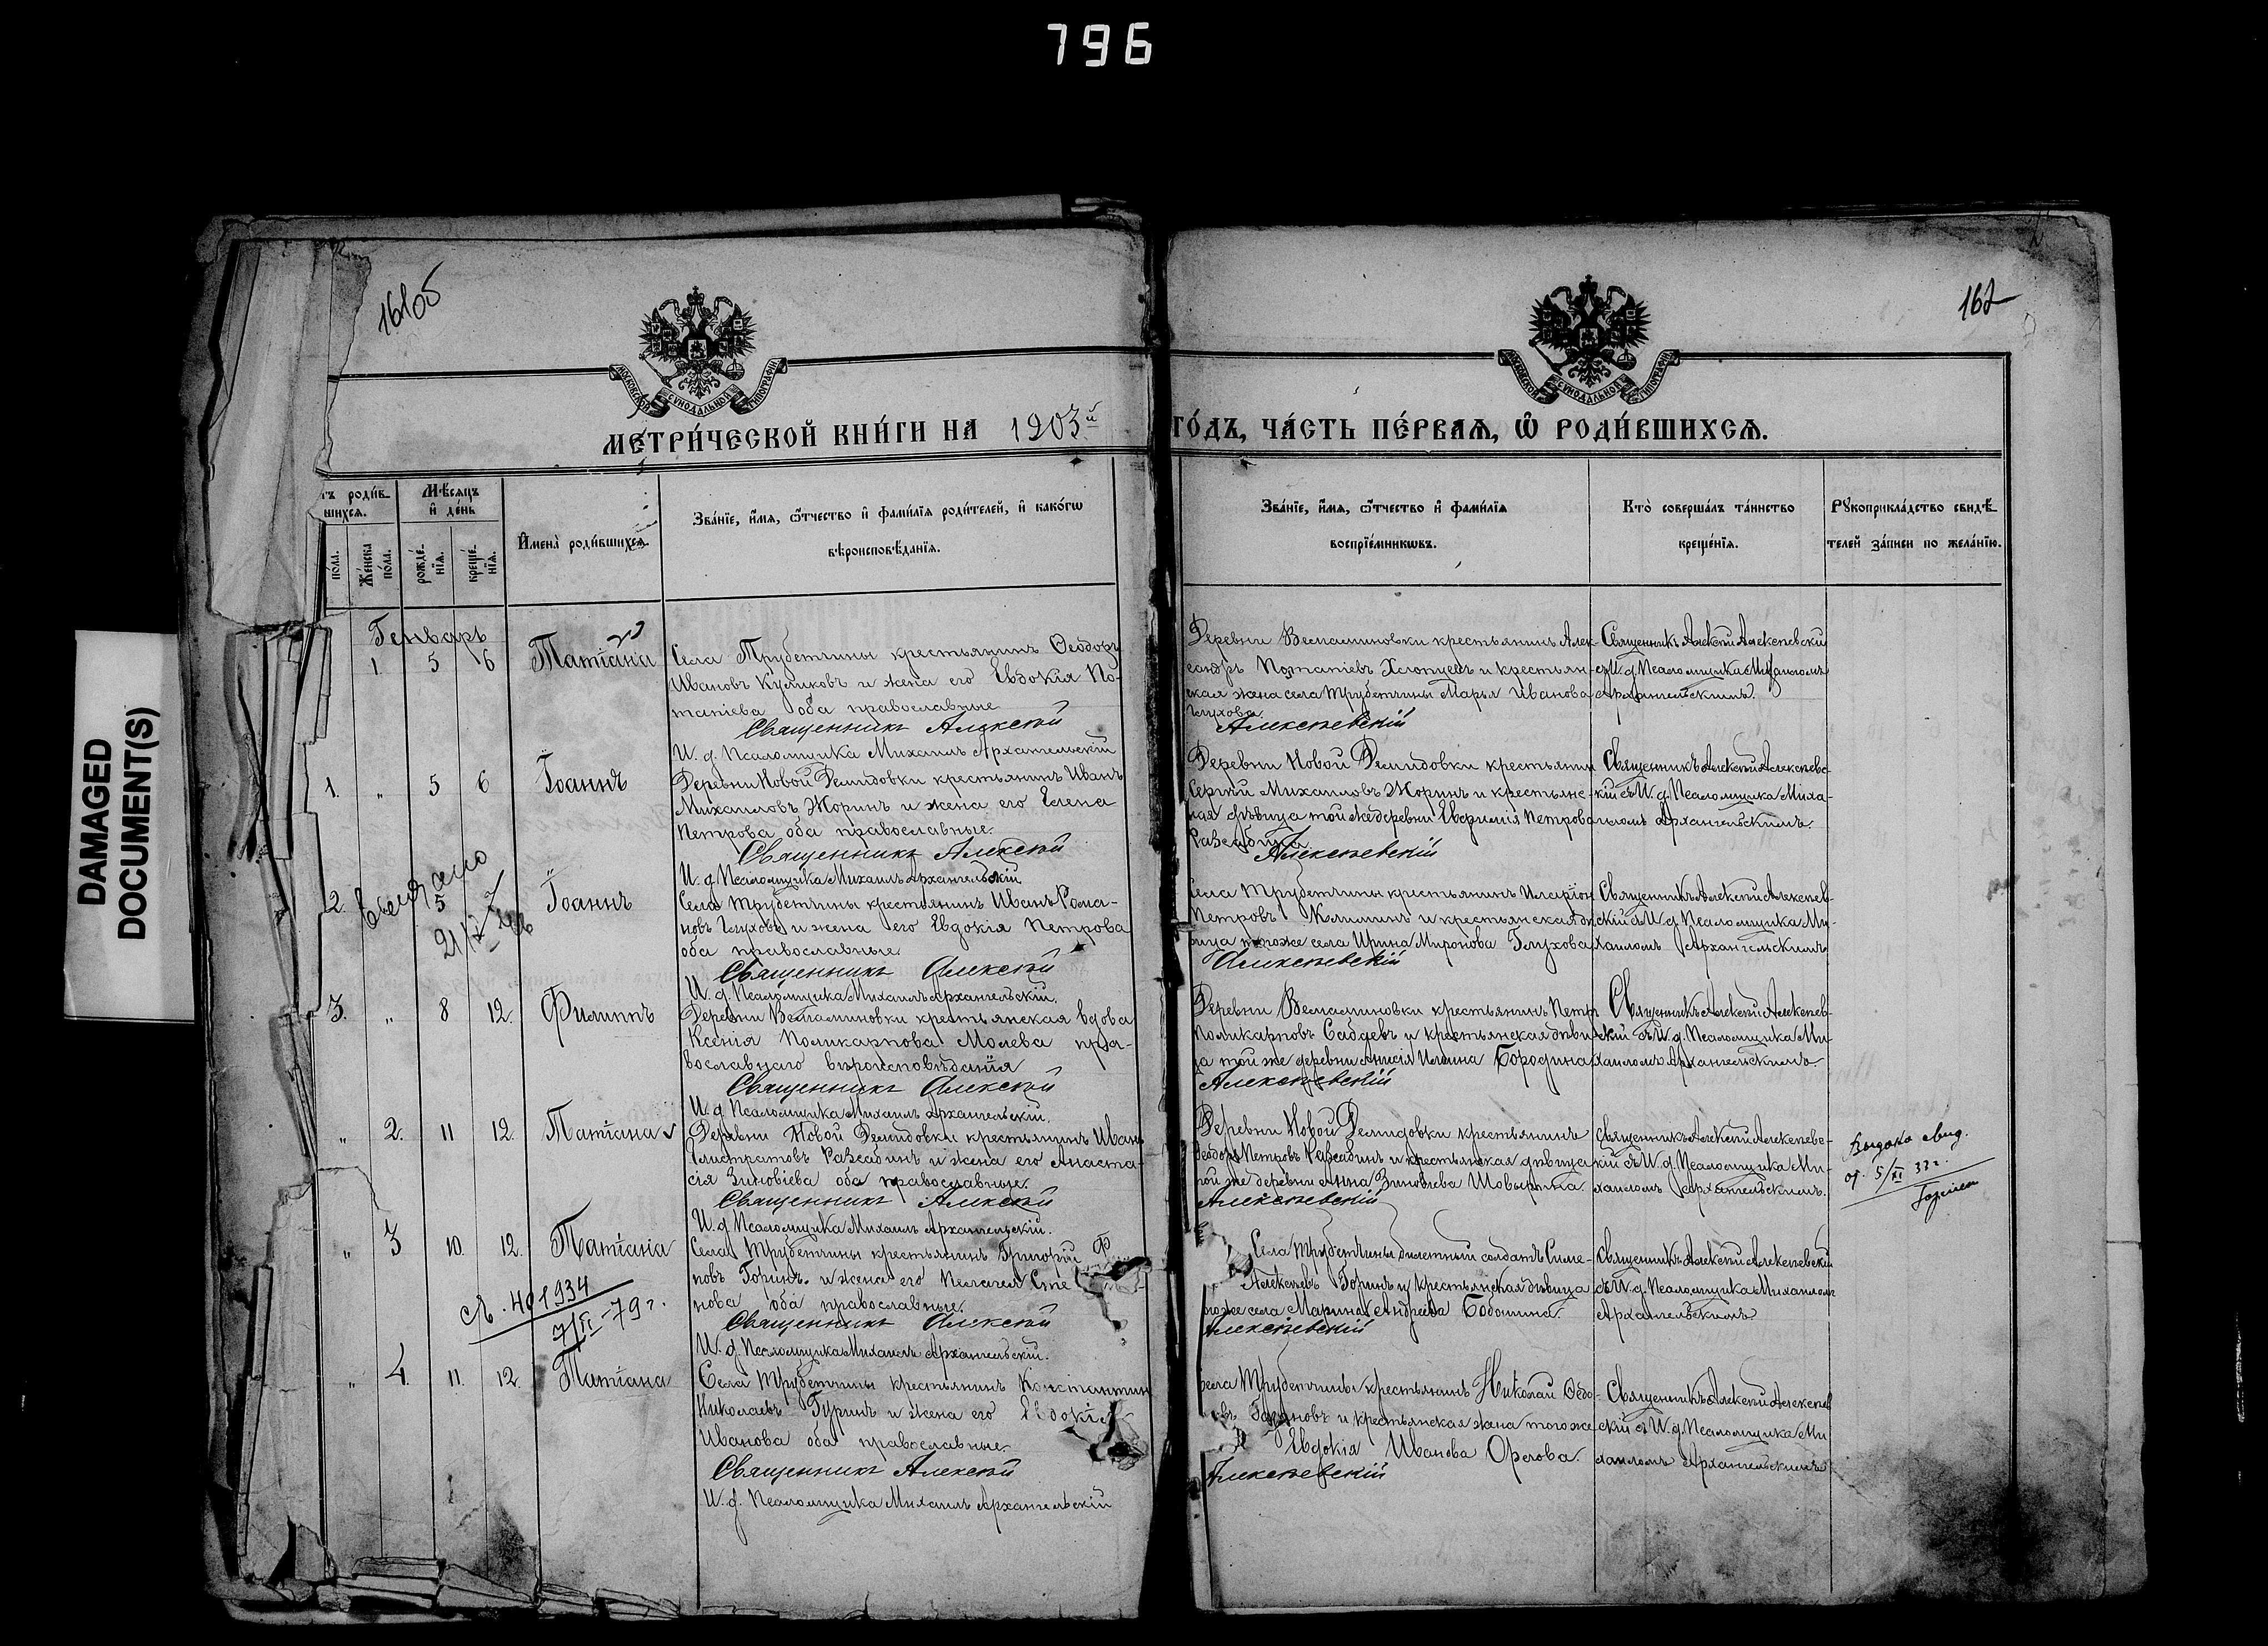 796
161об
162
МОСКОВСКОЙ СУНОДАЛЬНОЙ ТИПОГРАФІИ
МОСКОВСКОЙ СУНОДАЛЬНОЙ ТИПОГРАФІИ
МЕТРИ́ЧЕСКОЙ КНИ́ГИ НА 1903й
ГО́ДЪ, ЧА́СТЬ ПЕ́РВАѦ, Ѡ РОДИ́ВШИХСѦ.
тъ роди́в
шихсѧ.
по́ла.
Же́нска
по́ла.
Мѣ́сѧцъ
и҆ де́нь
рожде́
нїѧ.
креще́
нїѧ.
И҆мена̀ роди́вшихсѧ.
Зва́нїе, и҆́мѧ, ѻ҆́тчество и҆ фами́лїѧ роди́телей, и҆ како́гѡ
вѣроисповѣ́данїѧ.
Зва́нїе, и҆́мѧ, ѻ҆́тчество и҆ фами́лїѧ
воспрїе́мникѡвъ.
Кто̀ соверша́лъ та́инство
креще́нїѧ.
Рꙋкоприкла́дство свидѣ́
телей за́писи по жела́нїю.
DAMAGED
DOCUMENT(S)
Генварь
1. 5 6 Татіана
Села Трубетчины крестьянинъ Ѳеодоръ
Ивановъ Куликовъ и жена его Евдокія По-
тапіева оба православные
Священникъ Алексій
И. д. Псаломщика Михаилъ Архангельскій
Деревни Вельяминовки крестьянинъ Алек-
сандръ Потапіевъ Хлопцевъ и крестьян-
ская жена села Трубетчины Марья Иванова
Глухова
Алексѣевскій
Священникъ Алексій Алексѣевскій
съ И. д. Псаломщика Михаиломъ
Архангельскимъ.
1. „ 5 6 Іоаннъ
Деревни Новой Демидовки крестьянинъ Иванъ
Михаиловъ Жоринъ и жена его Елена
Петрова оба православные.
Священникъ Алексій
И. д. Псаломщика Михаилъ Архангельскій
Деревни Новой Демидовки крестьянин
Сергій Михаиловъ Жоринъ и крестьянс-
кая дѣвица той же деревни Евфимія Петрова
Алексѣевскій
Священникъ Алексій Алексѣевс-
кій съ И. д. Псаломщика Миха-
иломъ Архангельскимъ.
2. „ 5 Іоаннъ
Села Трубетчины крестьянинъ Иванъ Рома-
новъ Глуховъ и жена его Евдокія Петрова
оба православные.
Священникъ Алексій
И. д. Псаломщика Михаилъ Архангельскій.
Села Трубетчины крестьянинъ Иларіон
Петровъ Климинъ и крестьянская дѣ-
вица того же села Ирина Миронова Глухова
Алексѣевскій
Священникъ Алексій Алексѣев-
скій съ И. д. Псаломщика Ми-
хаиломъ Архангельскимъ
3. „ 8 12. Филиппъ
Деревни Вельяминовки крестьянская вдова
Ксенія Поликарпова Молева пра-
вославнаго вѣроисповѣданія
Священникъ Алексій
И. д. Псаломщика Михаилъ Архангельскій.
Деревни Вельяминовки крестьянинъ Петръ
Поликарповъ Савдевъ и крестьянская дѣви
ца той же деревни Анисія Ильина Бородина
Алексѣевскій
Священникъ Алексій Алексѣев-
скій съ И. д. Псаломщика Ми-
хаиломъ Архангельскимъ.
„ 2. 11 12. Татіана
Деревни Новой Демидовки крестьянинъ Иванъ
Разсадинъ и жена его Анаста-
сія Зиновіева оба православные.
Священникъ Алексій
И. д. Псаломщика Михаилъ Архангельскій.
Деревни Новой Демидовки крестьянинъ
Ѳеодоръ Петровъ Разсадинъ и крестьянская дѣвица
той же деревни Анна Зиновіева
Алексѣевскій
Священникъ Алексій Алексѣевс-
кій съ И. д. Псаломщика Ми-
хаиломъ Архангельскимъ.
Выдано свид.
от 5/XI 33 г.
„ 3 10. 12. Татіана
Села Трубетчины крестьянинъ Григорій Ф
новъ Горинъ и жена его Пелагея Сте
нова оба православные.
Священникъ Алексій
И. д. Псаломщика Михаилъ Архангельскій.
Села Трубетчины билетный солдатъ Симе-
Алексѣевъ Горинъ и крестьянская дѣвица
тогоже села Марина Андреева
Алексѣевскій
Священникъ Алексій Алексѣевскій
съ И. д. Псаломщика Михаиломъ
Архангельскимъ
401934
7/II-79 г.
„ 4. 11. 12. Татіана
Села Трубетчины крестьянинъ Константин
Николаевъ Гуринъ и жена его Евдокія
Иванова оба православные.
Священникъ Алексій
И. д. Псаломщика Михаилъ Архангельскій
села Трубетчины крестьянинъ Николай Ѳедо-
и крестьянская жена того же
Евдокія Иванова Орлова.
Алексѣевскій
Священникъ Алексій Алексѣев
скій съ И. д. Псаломщика Ми
хаиломъ Архангельскимъ